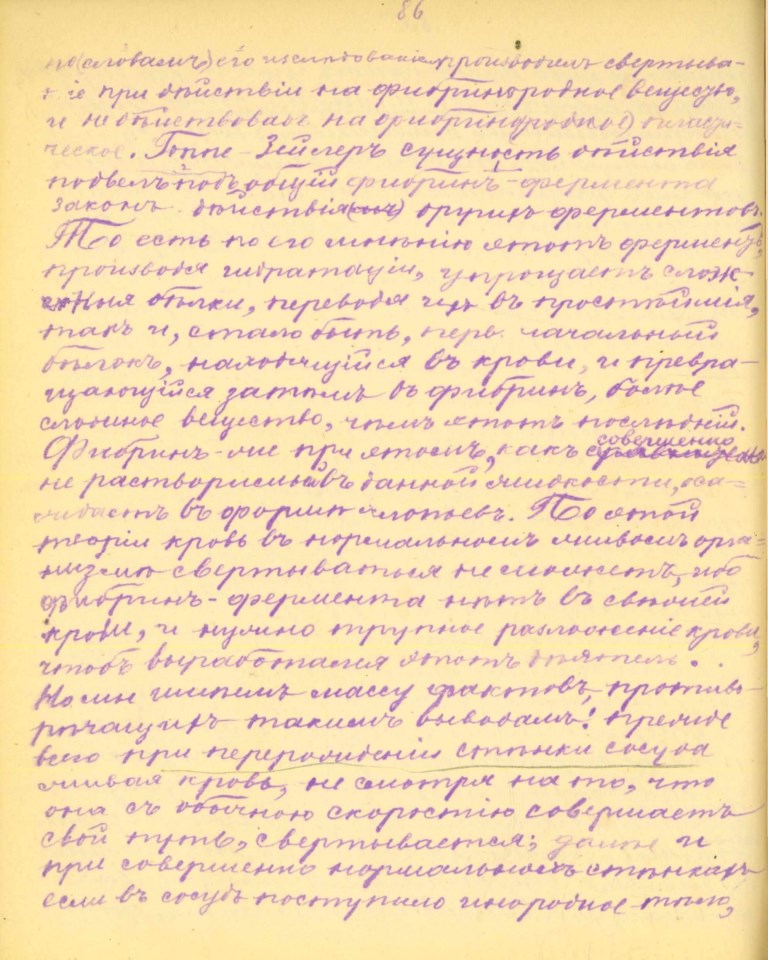 86
не (словамъ) его изслѣдованіямъ производилъ свертыва-
ніе при дѣйствіи на фибринородное вещество,
и не дѣйствовалъ на фибрин(ородное) пласти-
ческое. Гоппе-Зейлеръ сущность дѣйствія
подвелъ подъ общій фибринъ-фермента
законъ дѣйствія другихъ ферментовъ.
То есть по его мнѣнію этотъ ферментъ,
производя гидратаціи, упрощаетъ слож
ныя бѣлки, переводя ихъ въ простѣйшія,
такъ и, стало быть, перв. начальный
бѣлокъ, находящійся въ крови, и превра-
щающійся затѣмъ въ фибринъ, болѣе
сложное вещество, чѣмъ этотъ послѣдній.
Фибринъ-же при этомъ, какъ совершенно
не растворимый въ данной жидкости, оса-
ждаетъ въ формѣ хлопьевъ. По этой
теоріи кровь въ нормальномъ живомъ орга-
низмѣ свертываться не можетъ, ибо
фибринъ-фермента нѣтъ въ свѣжей
крови, и нужно трупное разложеніе крови,
чтобъ выработался этотъ дѣятель.
Но мы имѣемъ массу фактовъ, противо-
рѣчащихъ такимъ выводамъ! прежде
всего при перерожденіи стѣнки сосуда
живая кровь, не смотря на то, что
она съ обычною скоростію совершаетъ
свой путь, свертывается; далѣе и
при совершенно нормальныхъ стѣнкахъ
если въ сосудъ поступило инородное тѣло,